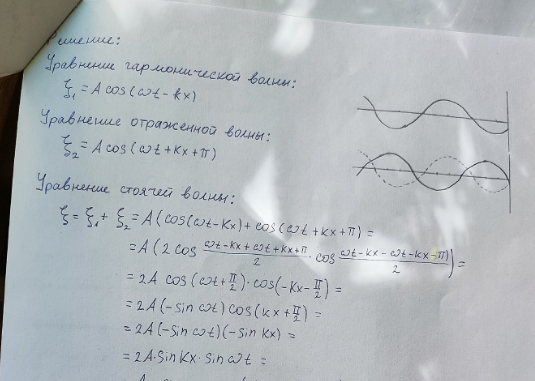 решение:
Уравнение гармонической волны:
ξ₁ = A cos(ωt - kx)
Уравнение отраженной волны:
ξ₂ = A cos(ωt + kx + π)
Уравнение стоячей волны:
ξ = ξ₁ + ξ₂ = A(cos(ωt - kx) + cos(ωt + kx + π) =
= A(2 cos (ωt - kx + ωt + kx + π)/2 · cos (ωt - kx - ωt - kx - π)/2) =
= 2A cos(ωt + π/2) · cos(-kx - π/2) =
= 2A(-sin ωt) cos(kx + π/2) =
= 2A(-sin ωt)(-sin kx) =
= 2A · sin kx · sin ωt =